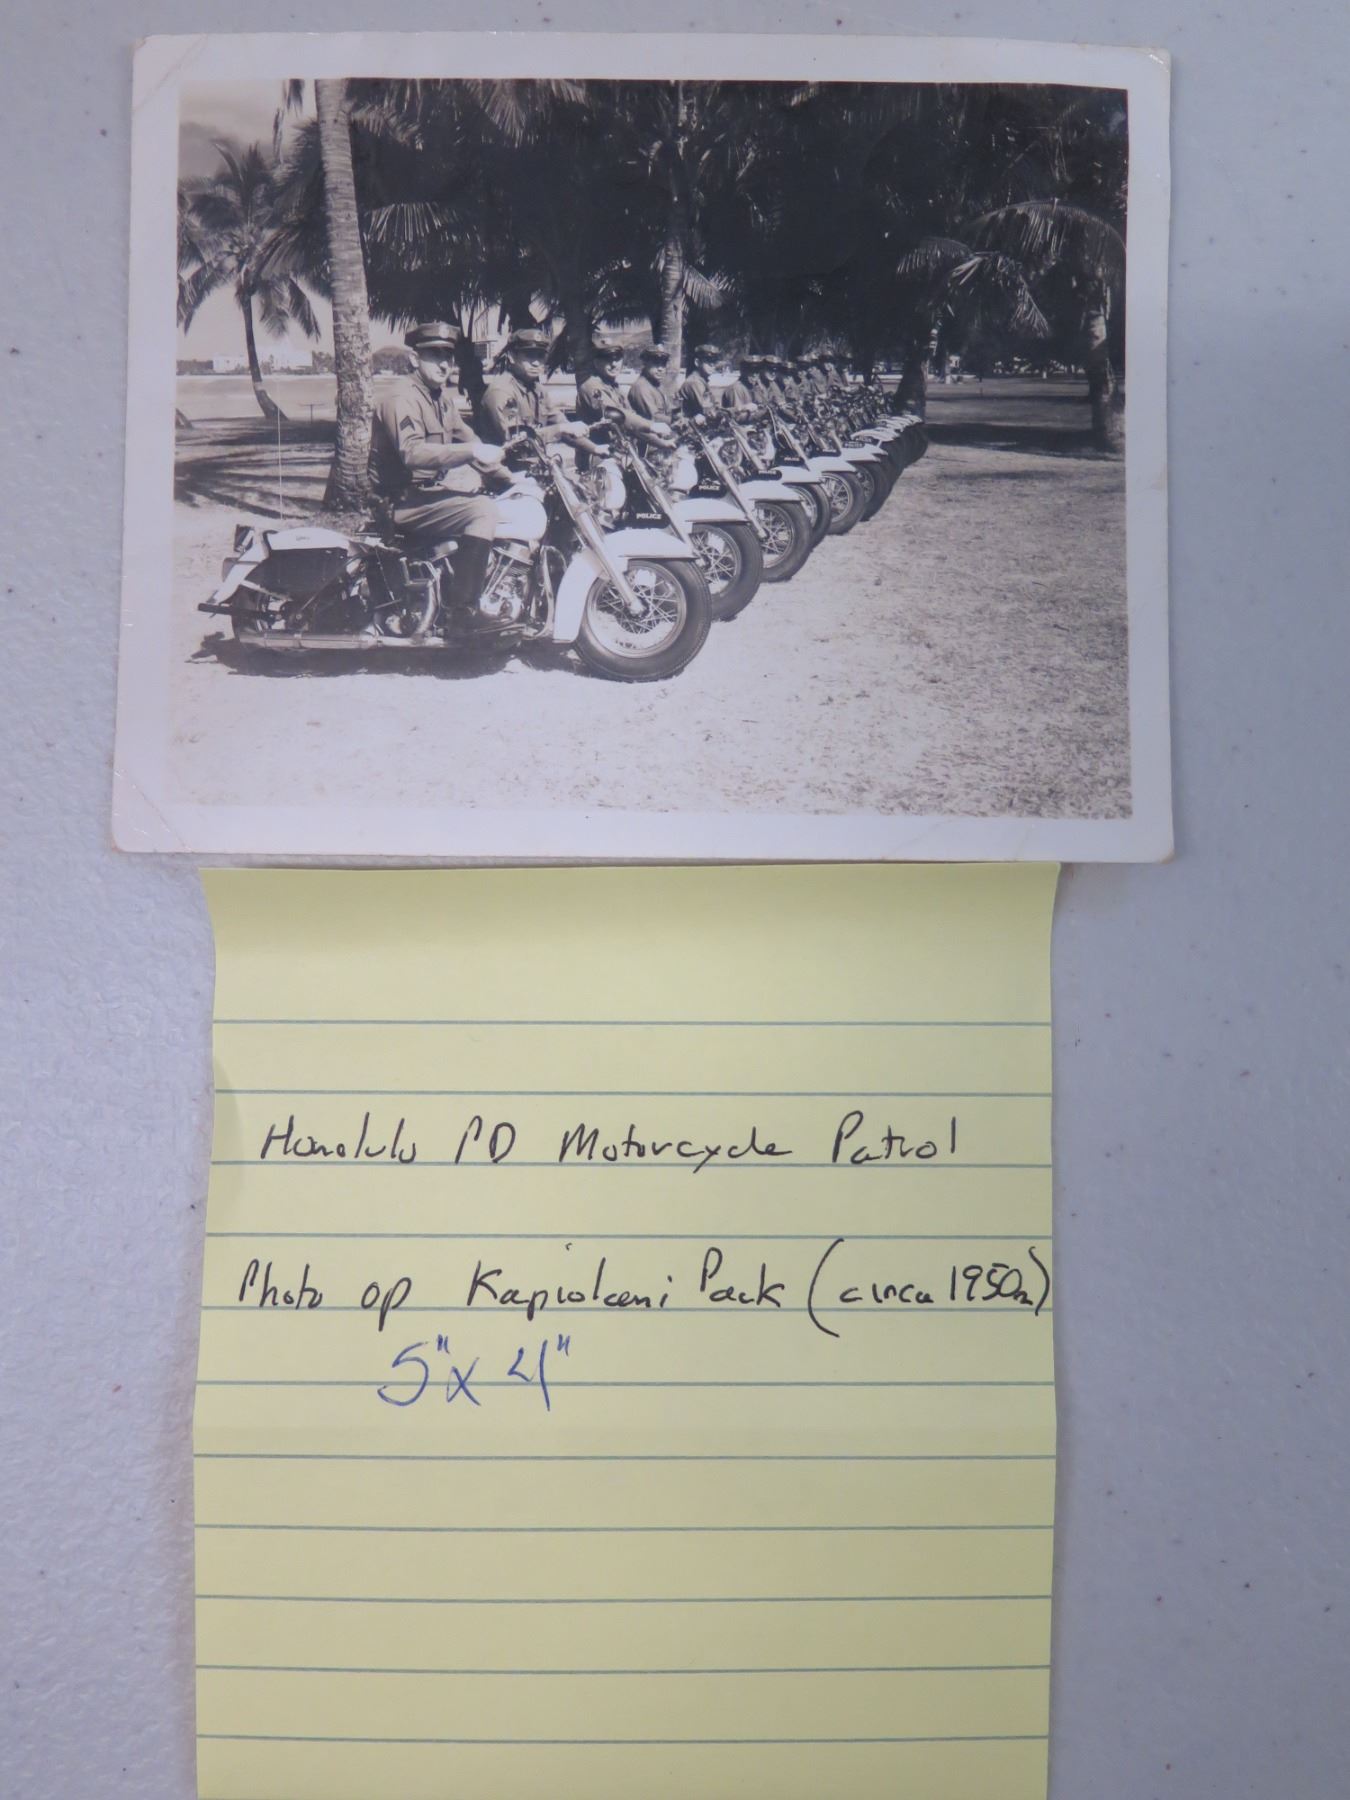 POLICE
POLICE
Honolulu PD Motorcycle Patrol
Photo op Kapiolani Park (circa 1950s)
5" x 4"